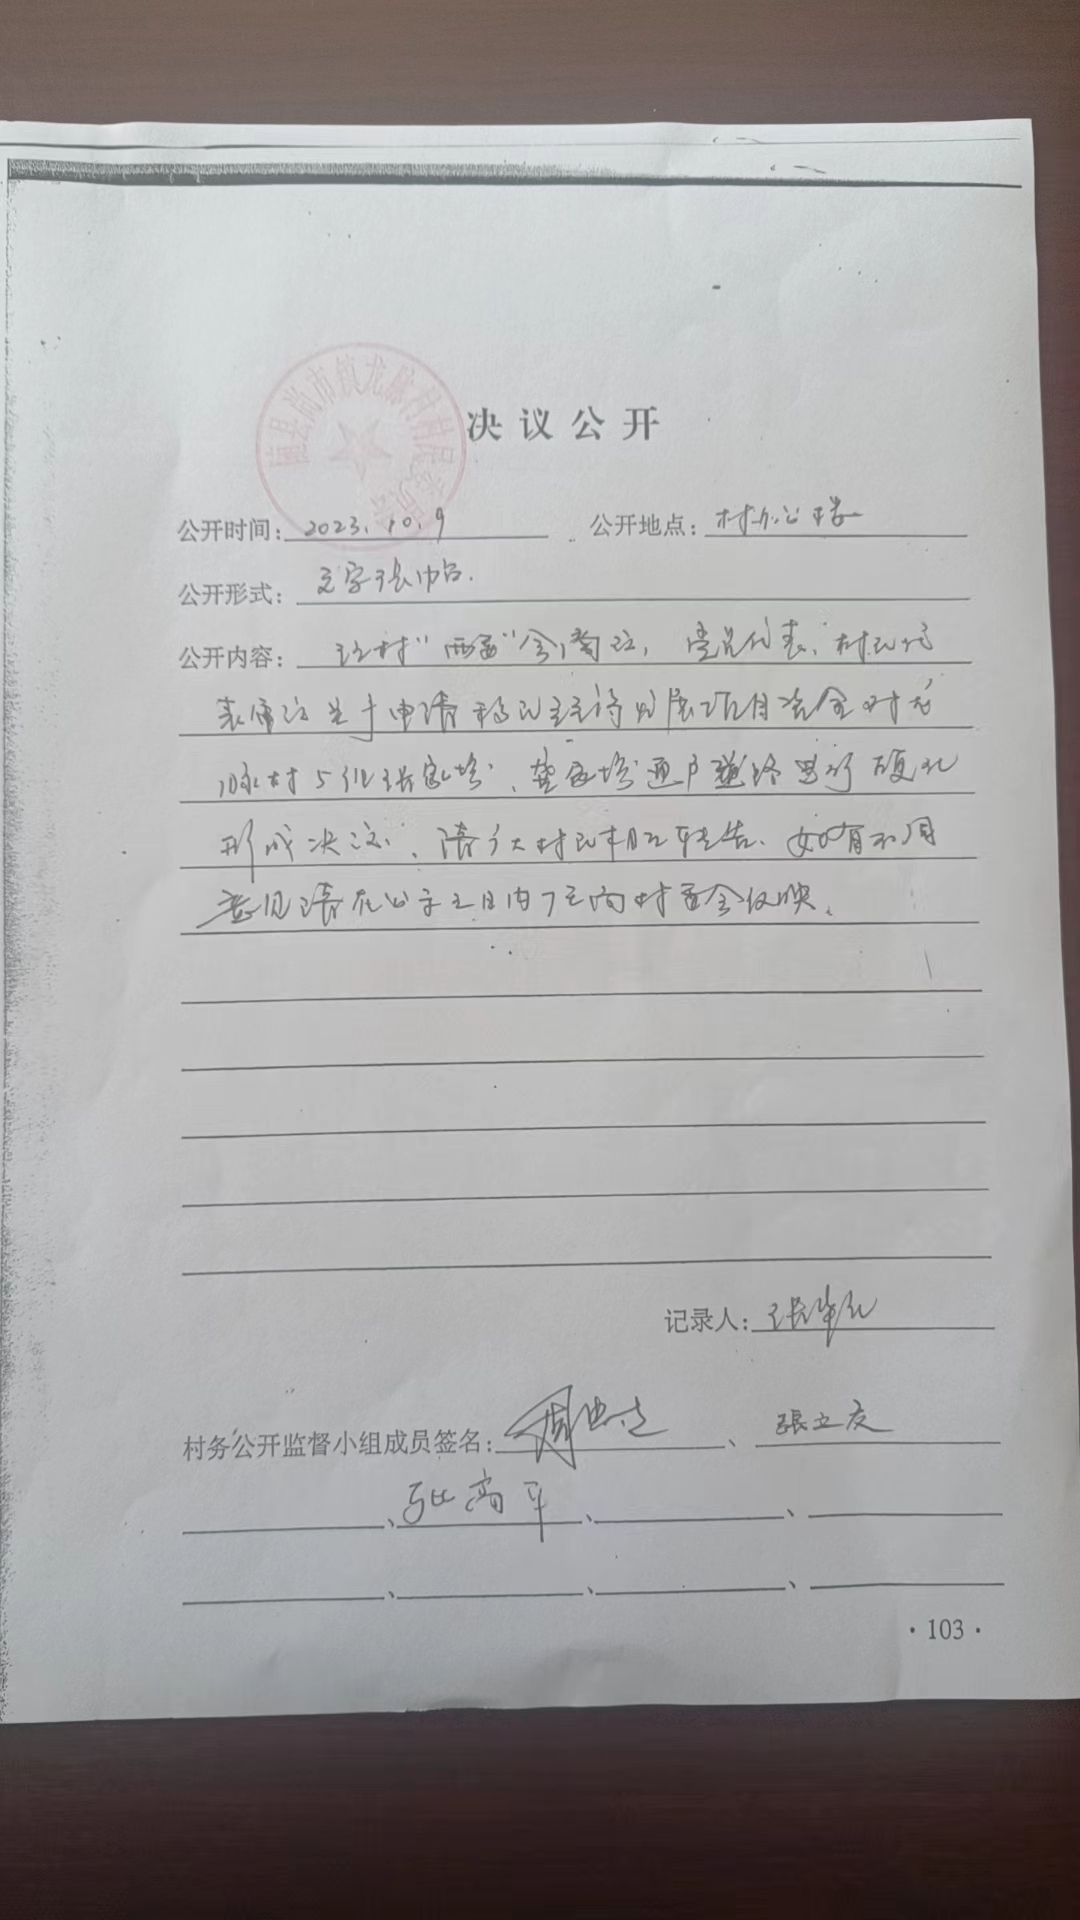 随县尚市镇龙脉村村民委员会
决议公开
公开时间：2023.10.9 公开地点：村办公楼
公开形式：文字张帖.
公开内容：经村“两委”会商议，党员代表、村民代
表审议关于申请移民主持发展项目资金对龙
脉村5组张家塆、龚家塆通户道路进行硬化
形成决议，请广大村民相互转告、如有不同
意见请在公示之日内7天向村委会反映。
记录人：张华
村务公开监督小组成员签名：周 、張立友
、张高平、 、
、 、 、
·103·